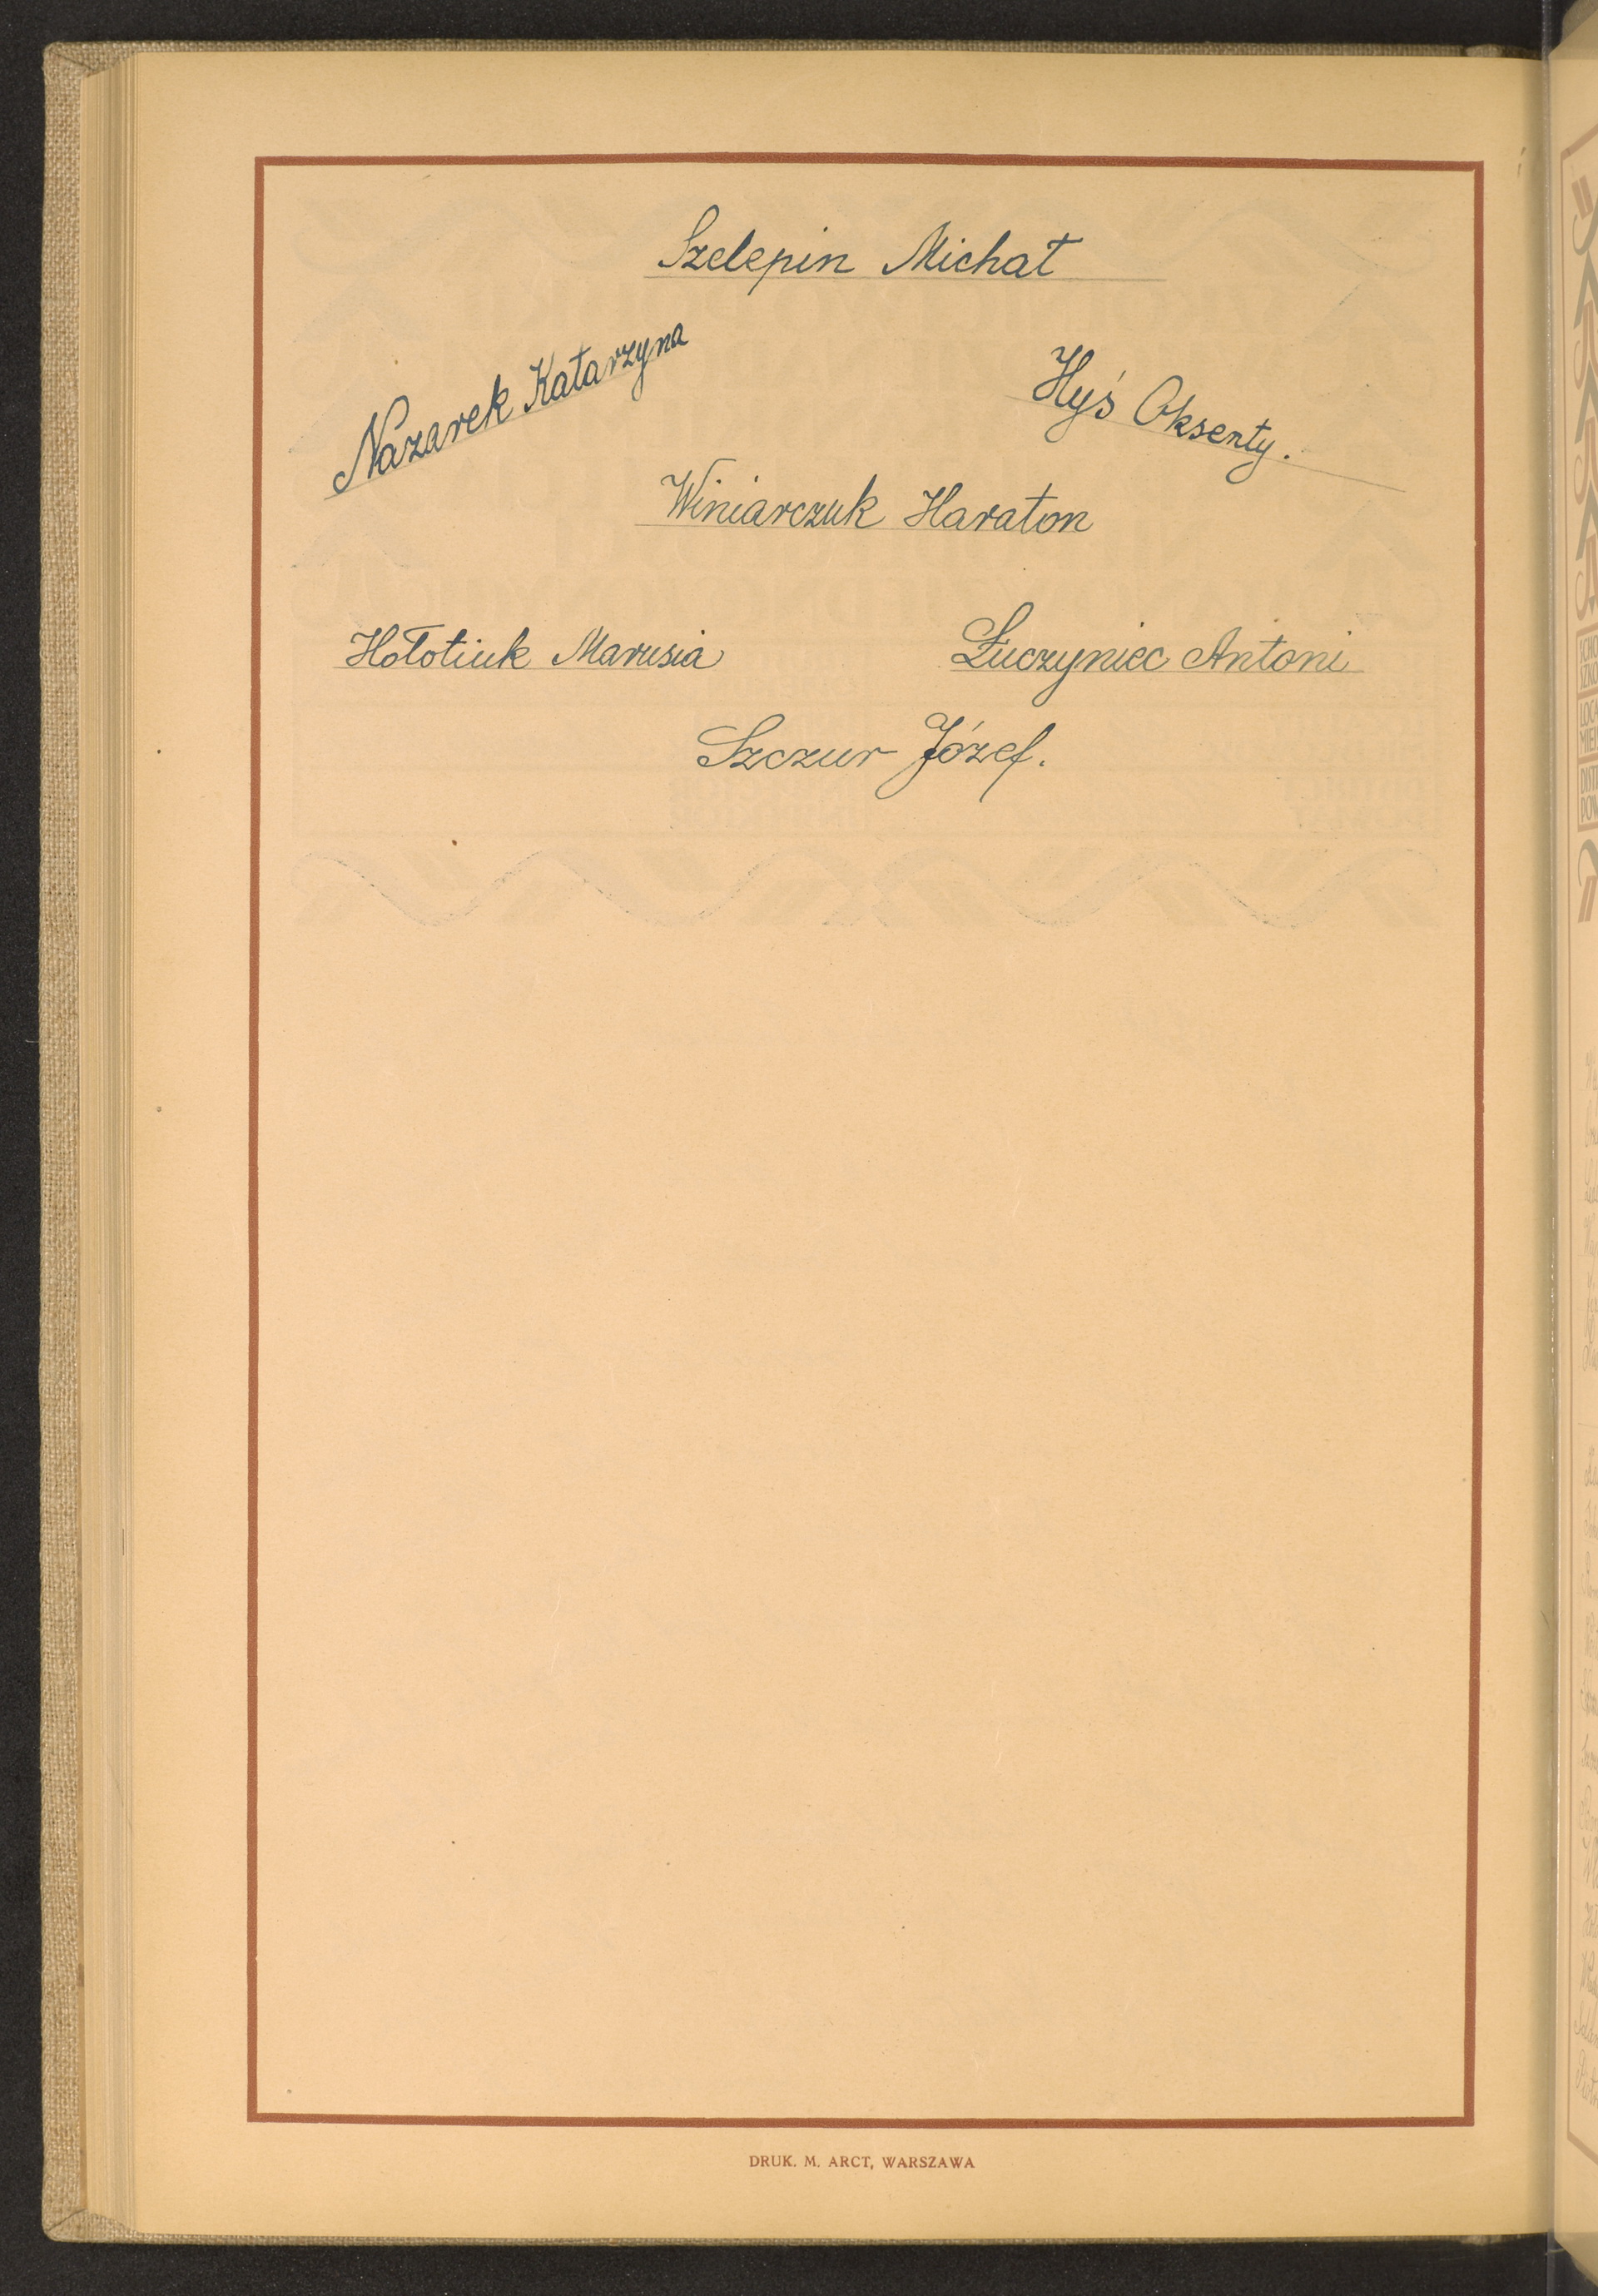 Szelepin Michał
Nazarek Katarzyna
Hyś Oksenty.
Winiarczuk Haraton
Hołotiuk Marusia
Łuczyniec Antoni
Szczur Józef.
DRUK. M. ARCT, WARSZAWA